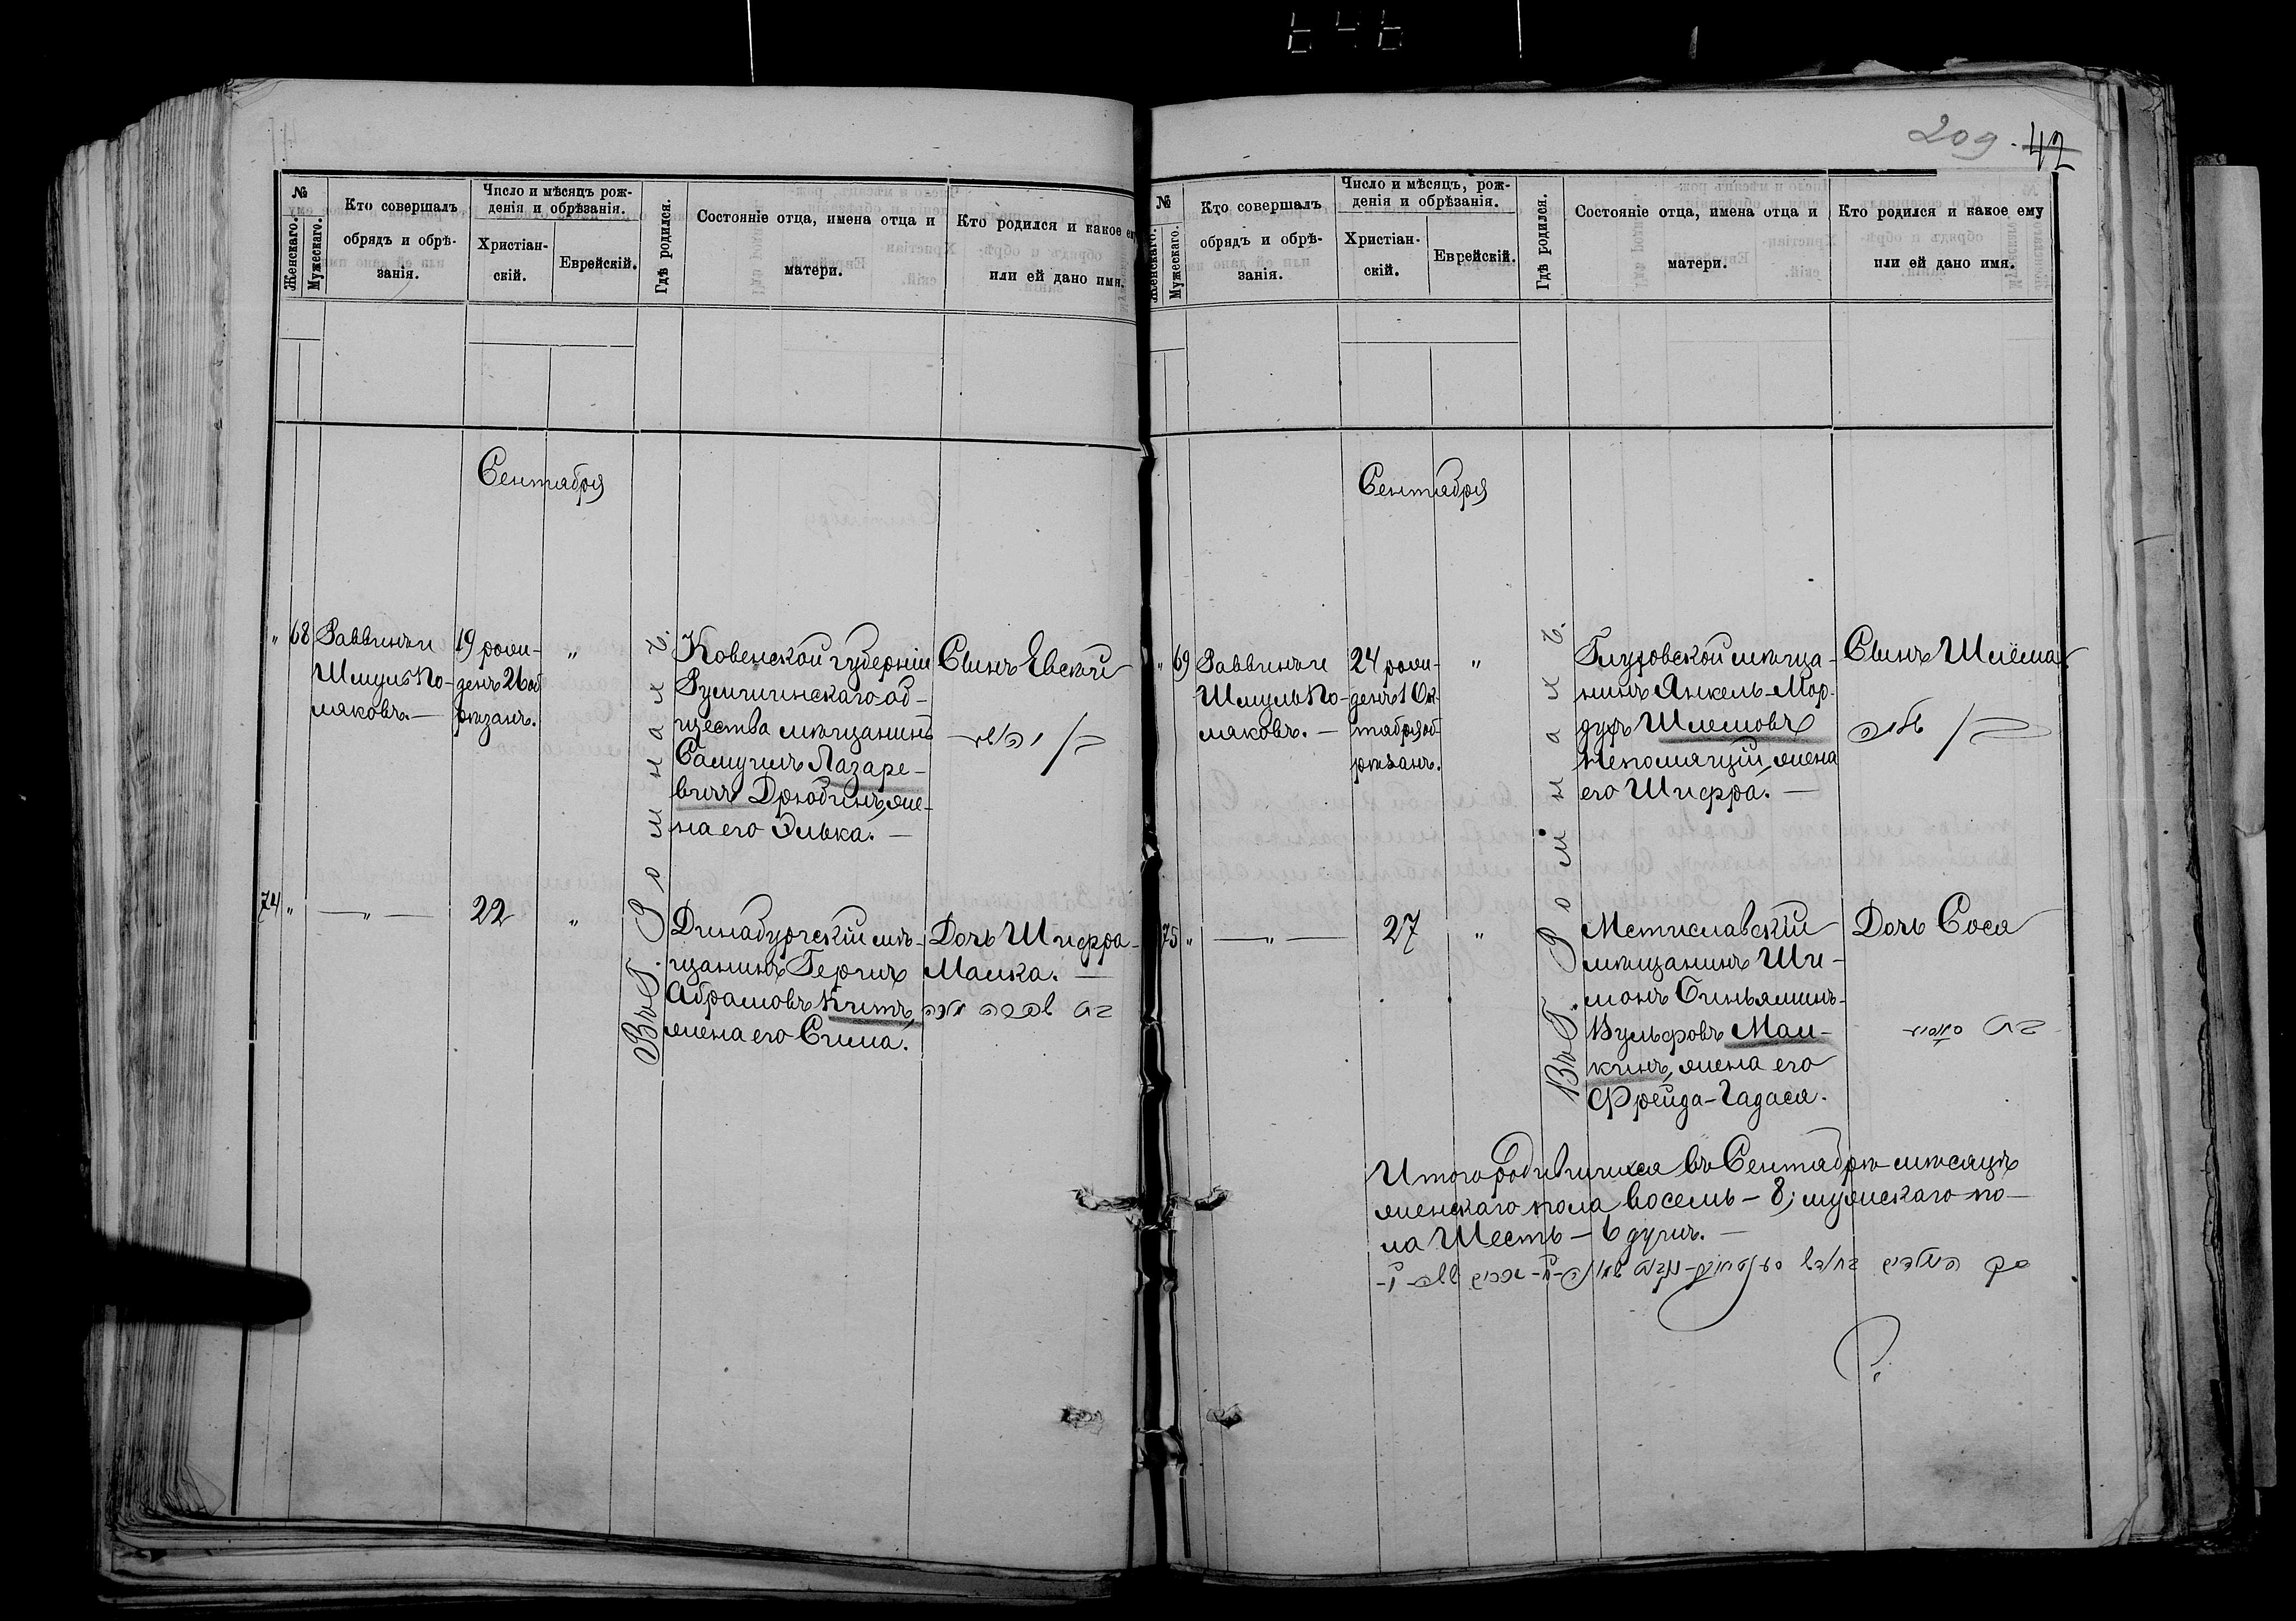 209. 42
№
Женскаго.
Мужескаго.
Кто совершалъ
обрядъ и обрѣ-
занія.
Число и мѣсяцъ рож-
денія и обрѣзанія.
Христіан-
скій.
Еврейскій.
Гдѣ родился.
Состояніе отца, имена отца и
матери.
Кто родился и какое ему
или ей дано имя.
Сентября
" 68
Раввинъ и
Шмуль По-
ляковъ. —
19 рожи-
денъ 26 об
рѣзанъ.
"
Въ Г. Роменахъ.
Ковенской губерніи
Румшинскаго об-
щества мѣщанинъ
Самуилъ Лазаре-
вичъ Дрюбинъ, же-
на его Элька. —
Сынъ Евсей
74 "
— " —
22
"
Динабургскій мѣ-
щанинъ Герцъ
Абрамовъ Китъ,
жена его Сима.
Дочь Шифра-
Малка. —
№
Женскаго.
Мужескаго.
Кто совершалъ
обрядъ и обрѣ-
занія.
Число и мѣсяцъ, рож-
денія и обрѣзанія.
Христіан-
скій.
Еврейскій.
Гдѣ родился.
Состояніе отца, имена отца и
матери.
Кто родился и какое ему
или ей дано имя.
Сентября
" 69
Раввинъ и
Шмуль По-
ляковъ. —
24 рожи-
денъ 1 Ок-
тября об
рѣзанъ.
"
Въ Г. Роменахъ.
Глуховской мѣща-
нинъ Янкель-Мор-
духъ Шлемовъ
Непомящій, жена
его Шифра. —
Сынъ Шлёма
75 "
— " —
27
"
Мстиславскій
мѣщанинъ Ши-
монъ Биньяминъ-
Вульфовъ Мал-
кинъ, жена его
Фрейда-Гадася.
Дочь Сося
Итого родившихся въ Сентябрѣ мѣсяцѣ
женскаго пола восемь — 8; мужескаго по-
ла Шесть — 6 душъ. —